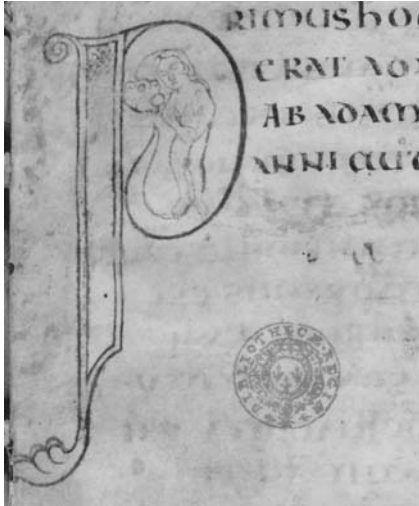 PRIMUS hO
ERAT ADA
AB ADAM
ANNI AUT
BIBLIOTHECÆ REGIÆ